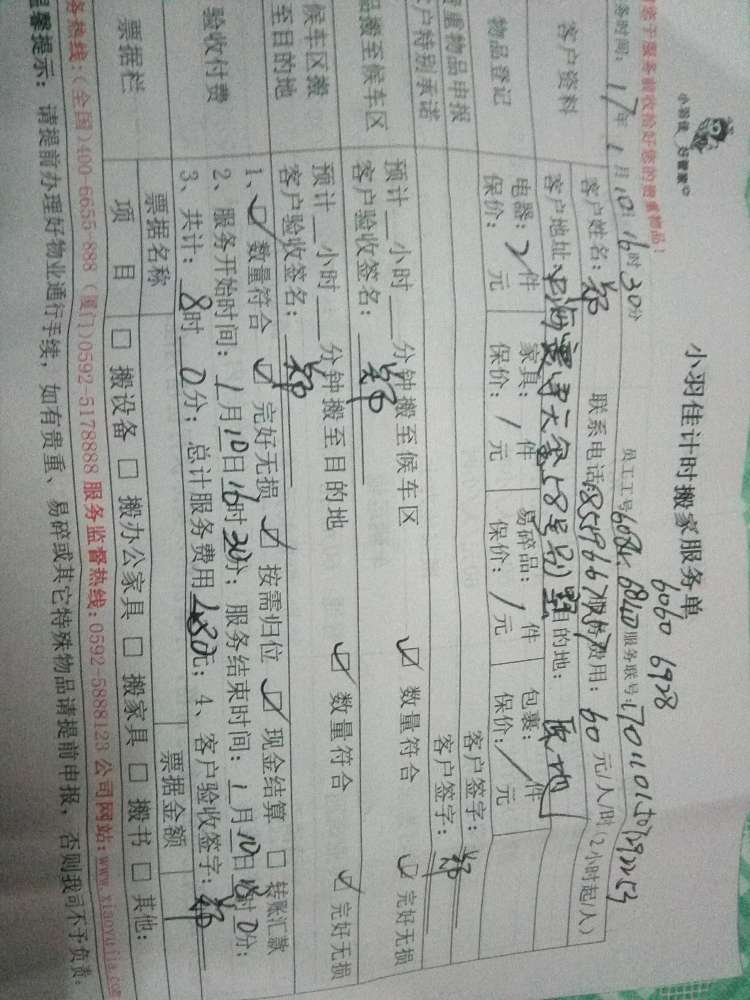 小羽佳 好管家
小羽佳计时搬家服务单
6060 6928
服务前收拾好您的贵重物品！
务时间：17年1月10日16时30分
员工工号 服务联号：
客户资料
客户姓名：郑 联系电话： 服务费用：60元/人/时(2小时起/人)
客户地址： 58号 目的地：
物品登记
电器：2件 家具：件 易碎品：件 包裹：件
保价：元 保价：元 保价：元 保价：元
贵重物品申报 客户签字：
客户特别承诺 客户签字：郑
品搬至候车区
预计 小时 分钟搬至候车区 数量符合 完好无损
客户验收签名：郑
候车区搬至目的地
预计 小时 分钟搬至目的地 数量符合 完好无损
客户验收签名：郑
验收付费
1、数量符合 完好无损 按需归位 现金结算 转账汇款
2、服务开始时间：1月10日16时30分；服务结束时间：1月10日 时0分；
3、共计：8时0分；总计服务费用480元；4、客户验收签字：郑
票据栏
票据名称 票据金额
项目 搬设备 搬办公家具 搬家具 搬书 其他：
务热线：(全国)400-6655-888 (厦门)0592-5178888 服务监督热线：0592-5888123 公司网站：www.xiaoyujia.com
温馨提示：请提前办理好物业通行手续，如有贵重、易碎或其它特殊物品请提前申报，否则我司不予负责。